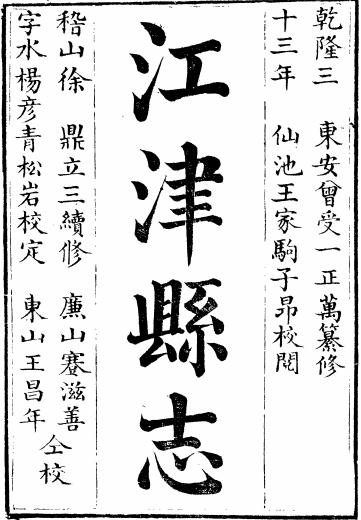 乾隆三十三年
東安曾受一正萬纂修
仙池王家駒子昂校閱
江津縣志
稽山徐鼎立三續修
字水楊彥青松岩校定
廉山蹇滋善
東山王昌年
仝校